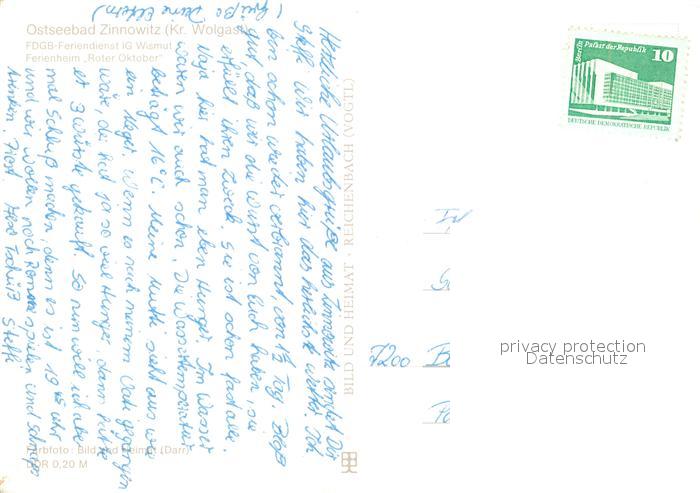 Ostseebad Zinnowitz (Kr. Wolgast)
FDGB-Feriendienst IG Wismut
Ferienheim „Roter Oktober"
(Grüße Deine Eltern)
Herzliche Urlaubsgrüße aus Zinnowitz sendet Dir
Steffi. Wir haben hier das herrlichste Wetter. Ich
bin schon wieder verbrannt, von ½ Tag. Bloß
gut daß wir die Wurst von Euch haben, sie
erfüllt ihren Zweck. Sie ist schon fast alle.
Naja hier hat man eben Hunger. Im Wasser
waren wir auch schon. Die Wassertemperatur
beträgt 16°C. Meine Mutti sieht aus wie
ein Neger. Wenn es nach meinem Vati gegangen
wäre, der hat ja so viel Hunger, dann hätte
er 3 Würste gekauft. So nun will ich aber
mal Schluß machen, denn es ist 19 45 Uhr
und wir wollen noch Romme spielen und Schnaps
trinken. Prost. Tschüß Steffi
Farbfoto: Bild und Heimat (Darr)
DDR 0,20 M
BILD UND HEIMAT · REICHENBACH (VOGTL)
Berlin Palast der Republik
10
DEUTSCHE DEMOKRATISCHE REPUBLIK
7200 B
privacy protection
Datenschutz